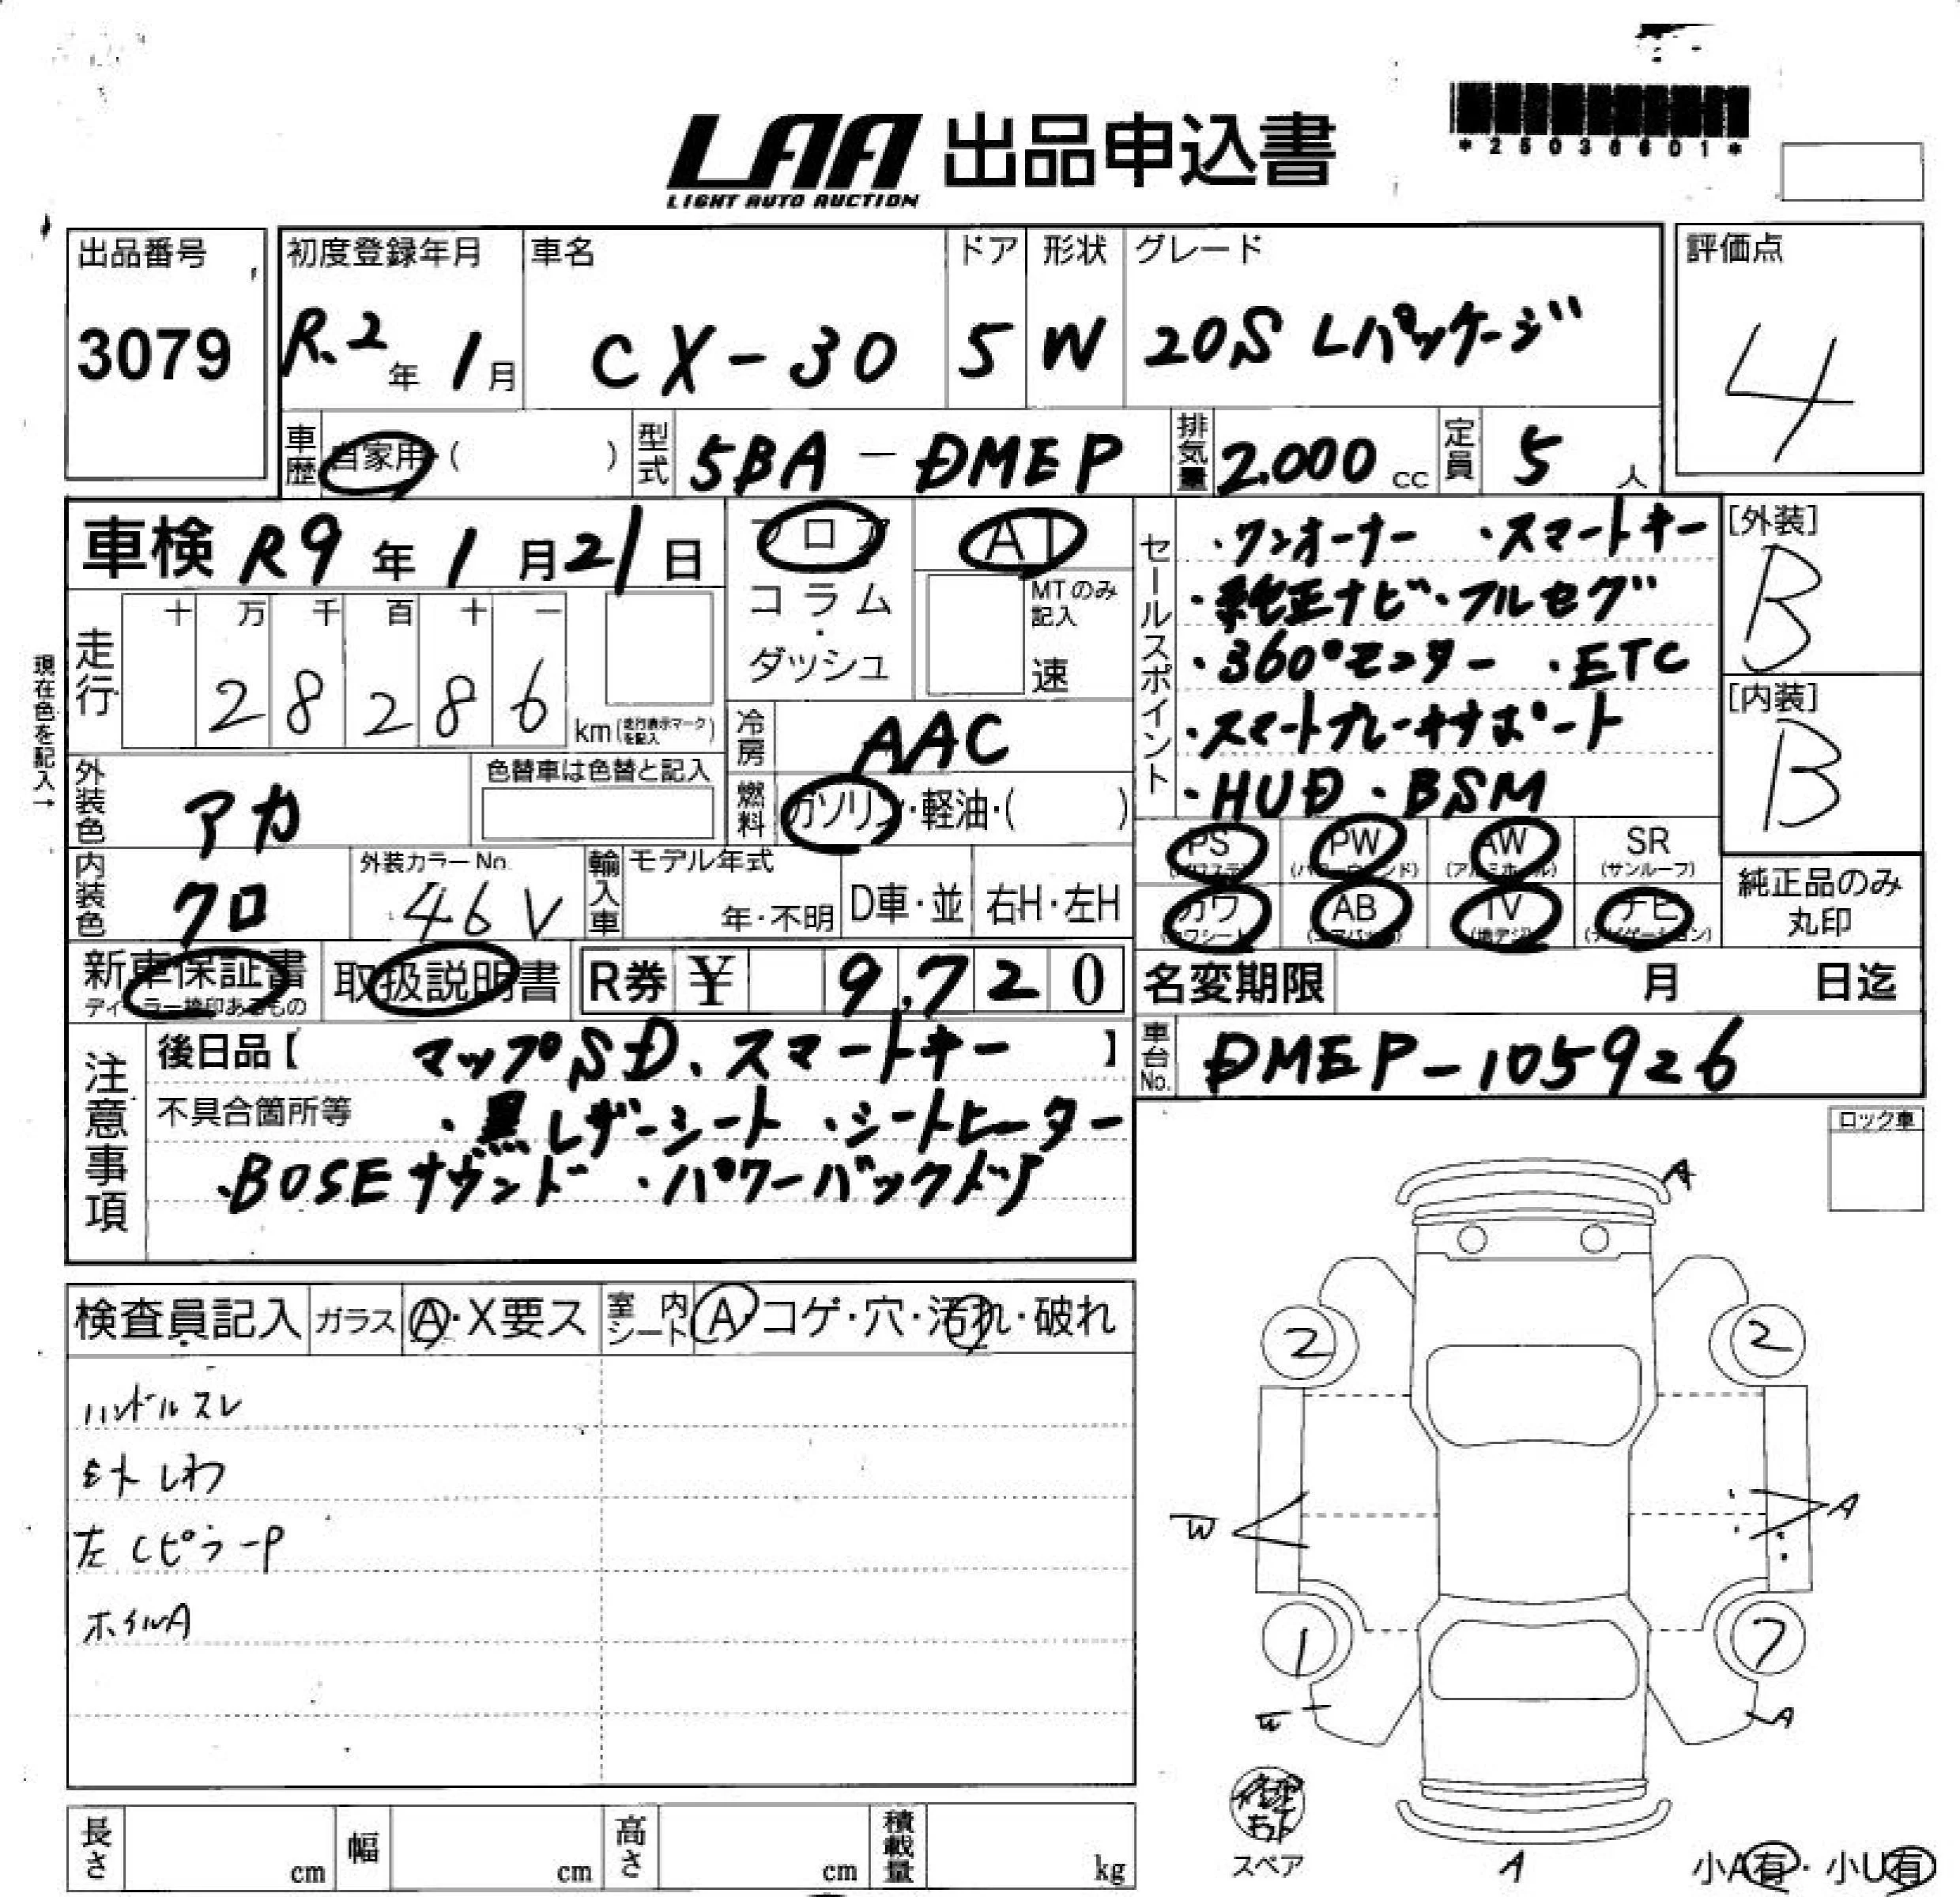 *25036601*
LAA 出品申込書
LIGHT AUTO AUCTION
出品番号 初度登録年月 車名 ドア 形状 グレード 評価点
3079 R.2年 1月 CX-30 5 W 20S Lパッケージ 4
車歴 自家用・( ) 型式 5BA-DMEP 排気量 2.000cc 定員 5人
車検 R9年 1月 21日 フロア AT
コラム・ダッシュ MTのみ記入 速
セールスポイント
・ワンオーナー ・スマートキー
・純正ナビ・フルセグ
・360°モニター ・ETC
・スマートブレーキサポート
・HUD ・BSM
[外装] B
[内装] B
現在色を記入→
走行 十 万 千 百 十 一
2 8 2 8 6 km(走行表示マークを記入)
冷房 AAC
外装色 アカ 色替車は色替と記入
燃料 ガソリン・軽油・( )
PS PW AW SR
(パワステ) (パワーウィンド) (アルミホイール) (サンルーフ)
カワ AB TV ナビ
(カワシート) (エアバッグ) (地デジ) (ナビゲーション)
純正品のみ丸印
内装色 クロ 外装カラーNo. 46V 輸入車 モデル年式 年・不明 D車・並 右H・左H
新車保証書 取扱説明書 R券 ¥ 9,720
ディーラー捺印あるもの
名変期限 月 日迄
車台No. DMEP-105926
注意事項
後日品【 マップSD、スマートキー 】
不具合箇所等 ・黒レザーシート ・シートヒーター
・BOSEサウンド ・パワーバックドア
ロック車
検査員記入 ガラス A・X要ス 室内シート A・コゲ・穴・汚れ・破れ
ハンドルスレ
シートしわ
左CピラーP
ホイルA
A
2 2
W A
1 7
A
スペア A 小A有・小U有
長さ cm 幅 cm 高さ cm 積載量 kg